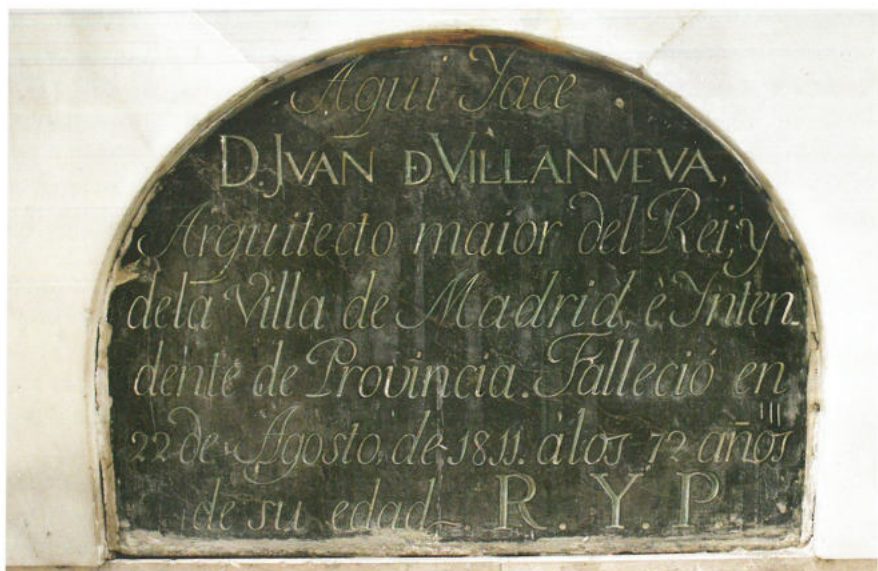 Aqui Yace
D. JVAN ĐVILLANVEVA,
Arquitecto maior del Rei, y
dela Villa de Madrid, è Inten_
dente de Provincia. Falleció en
22 de Agosto, de 1811. à los 72 años
de su edad_ R. Y. P.